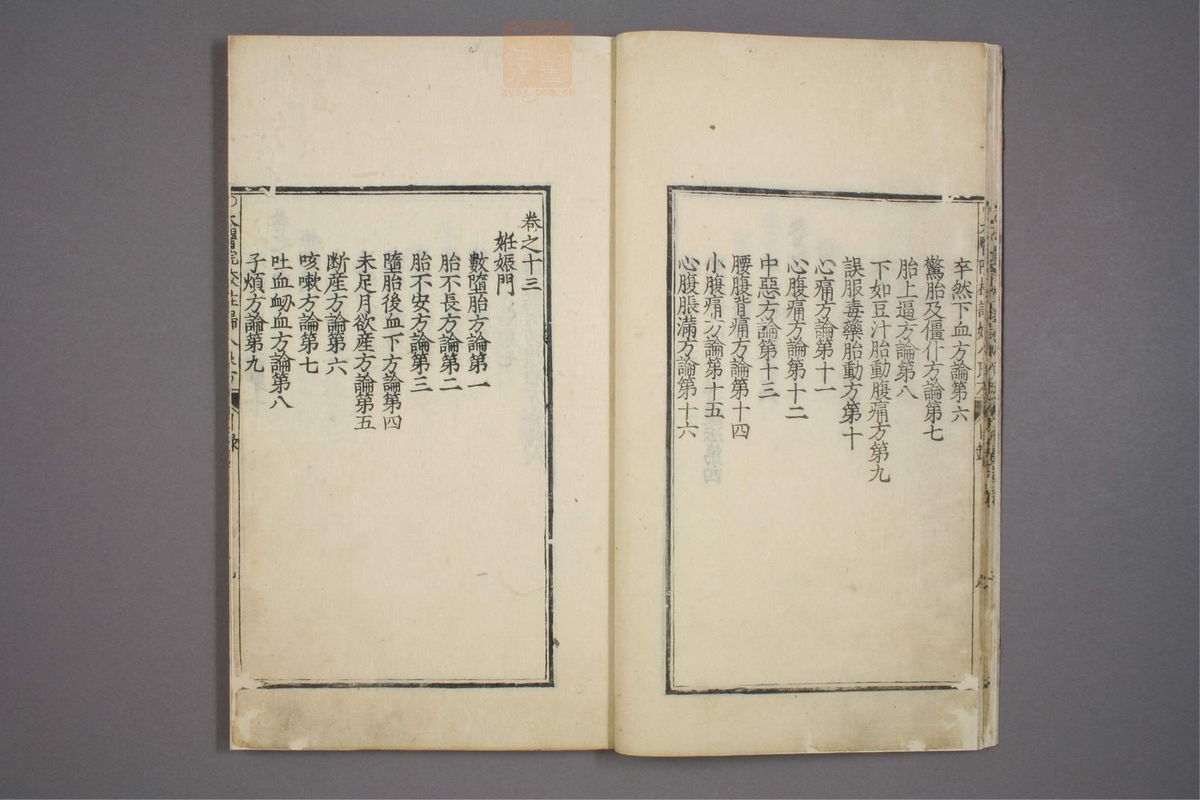 卒然下血方論第六
驚胎及僵仆方論第七
胎上逼方論第八
下如豆汁胎動腹痛方第九
誤服毒藥胎動方第十
心痛方論第十一
心腹痛方論第十二
中惡方論第十三
腰腹背痛方論第十四
小腹痛方論第十五
心腹脹滿方論第十六
卷之十三
姙娠門
數墮胎方論第一
胎不長方論第二
胎不安方論第三
墮胎後血下方論第四
未足月欲産方論第五
断産方方論第六
咳嗽方論第七
吐血衂血方論第八
子煩方論第九